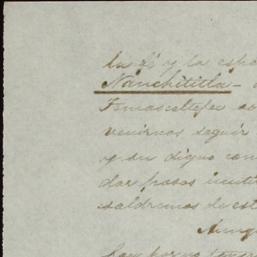 la fé y la espe
Nanchititla -
Temascaltepec
venirnos seguir
y su digno con
dar pasos inuti
saldremos de es
Aunq